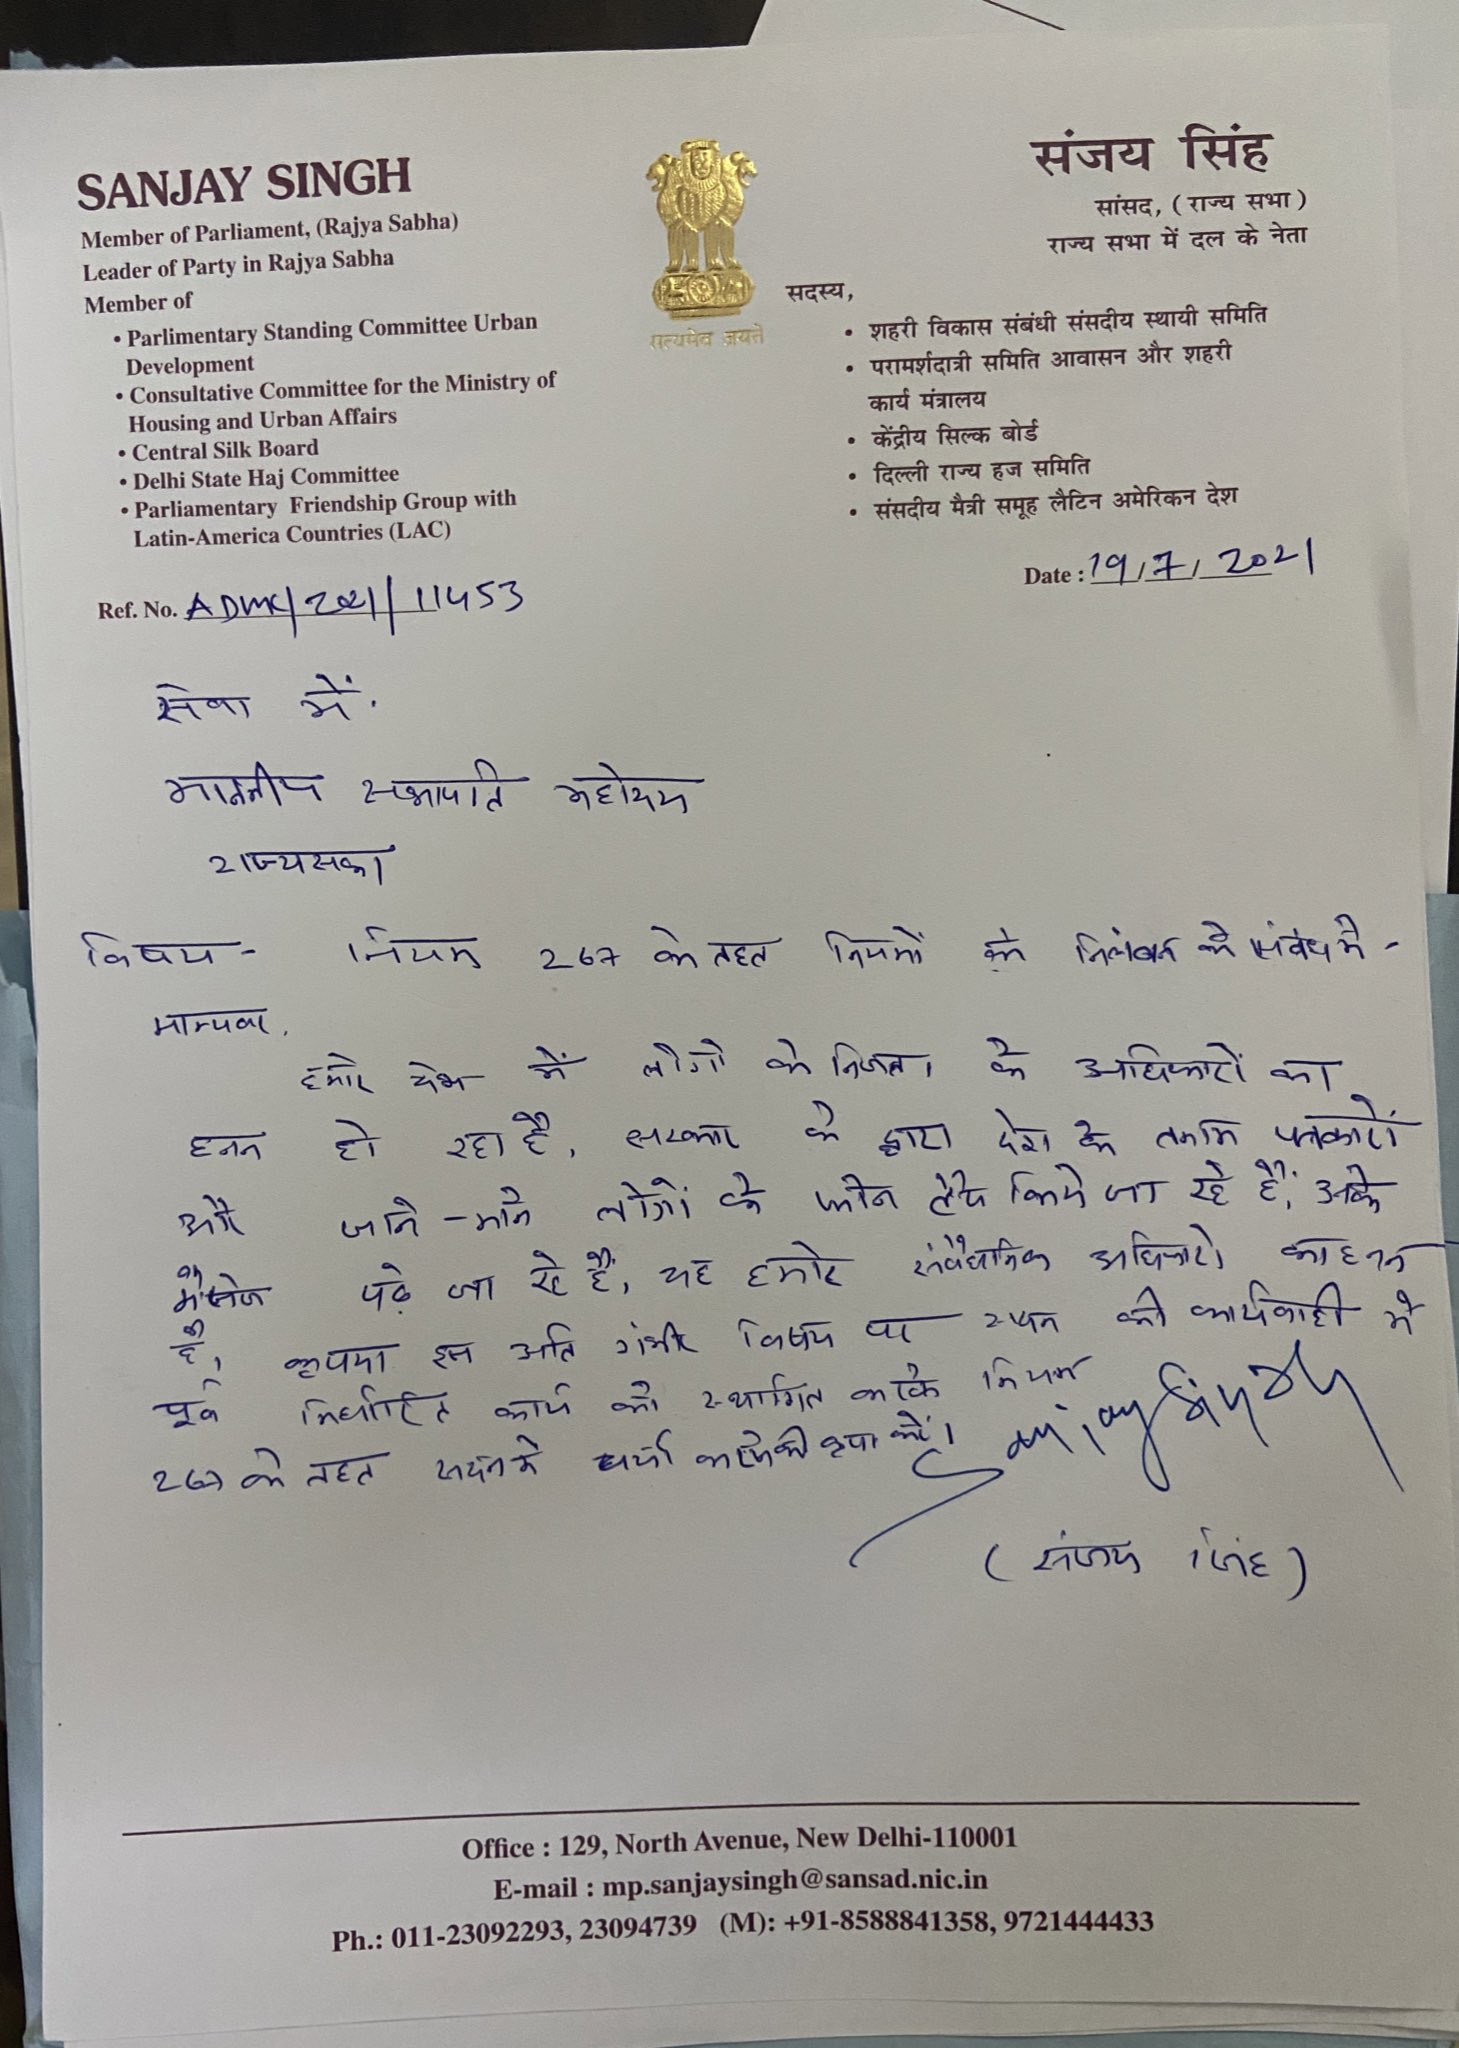 SANJAY SINGH
Member of Parliament, (Rajya Sabha)
Leader of Party in Rajya Sabha
Member of
• Parlimentary Standing Committee Urban
Development
• Consultative Committee for the Ministry of
Housing and Urban Affairs
• Central Silk Board
• Delhi State Haj Committee
• Parliamentary Friendship Group with
Latin-America Countries (LAC)
सत्यमेव जयते
संजय सिंह
सांसद, (राज्य सभा)
राज्य सभा में दल के नेता
सदस्य,
• शहरी विकास संबंधी संसदीय स्थायी समिति
• परामर्शदात्री समिति आवासन और शहरी
कार्य मंत्रालय
• केंद्रीय सिल्क बोर्ड
• दिल्ली राज्य हज समिति
• संसदीय मैत्री समूह लैटिन अमेरिकन देश
Ref. No. ADMK/2021/11453
Date : 19/7/2021
सेवा में.
माननीय सभापति महोदय
राज्यसभा
विषय - नियम 267 के तहत नियमों के निलंबन के संबंध में -
मान्यवर,
हमारे देश में लोगों के निजता के अधिकारों का
हनन हो रहा है, सरकार के द्वारा देश के तमाम पत्रकारों
और जाने-माने लोगों के फोन टेप किये जा रहे हैं, उनके
मैसेज पढ़े जा रहे हैं, यह हमारे संवैधानिक अधिकारों का हनन
है, कृपया इस अति गंभीर विषय पर सदन की कार्यवाही में
पूर्व निर्धारित कार्य को स्थगित करके नियम
267 के तहत सदन में चर्चा कराने की कृपा करें।
Sanjay Singh
(संजय सिंह)
Office : 129, North Avenue, New Delhi-110001
E-mail : mp.sanjaysingh@sansad.nic.in
Ph.: 011-23092293, 23094739 (M): +91-8588841358, 9721444433